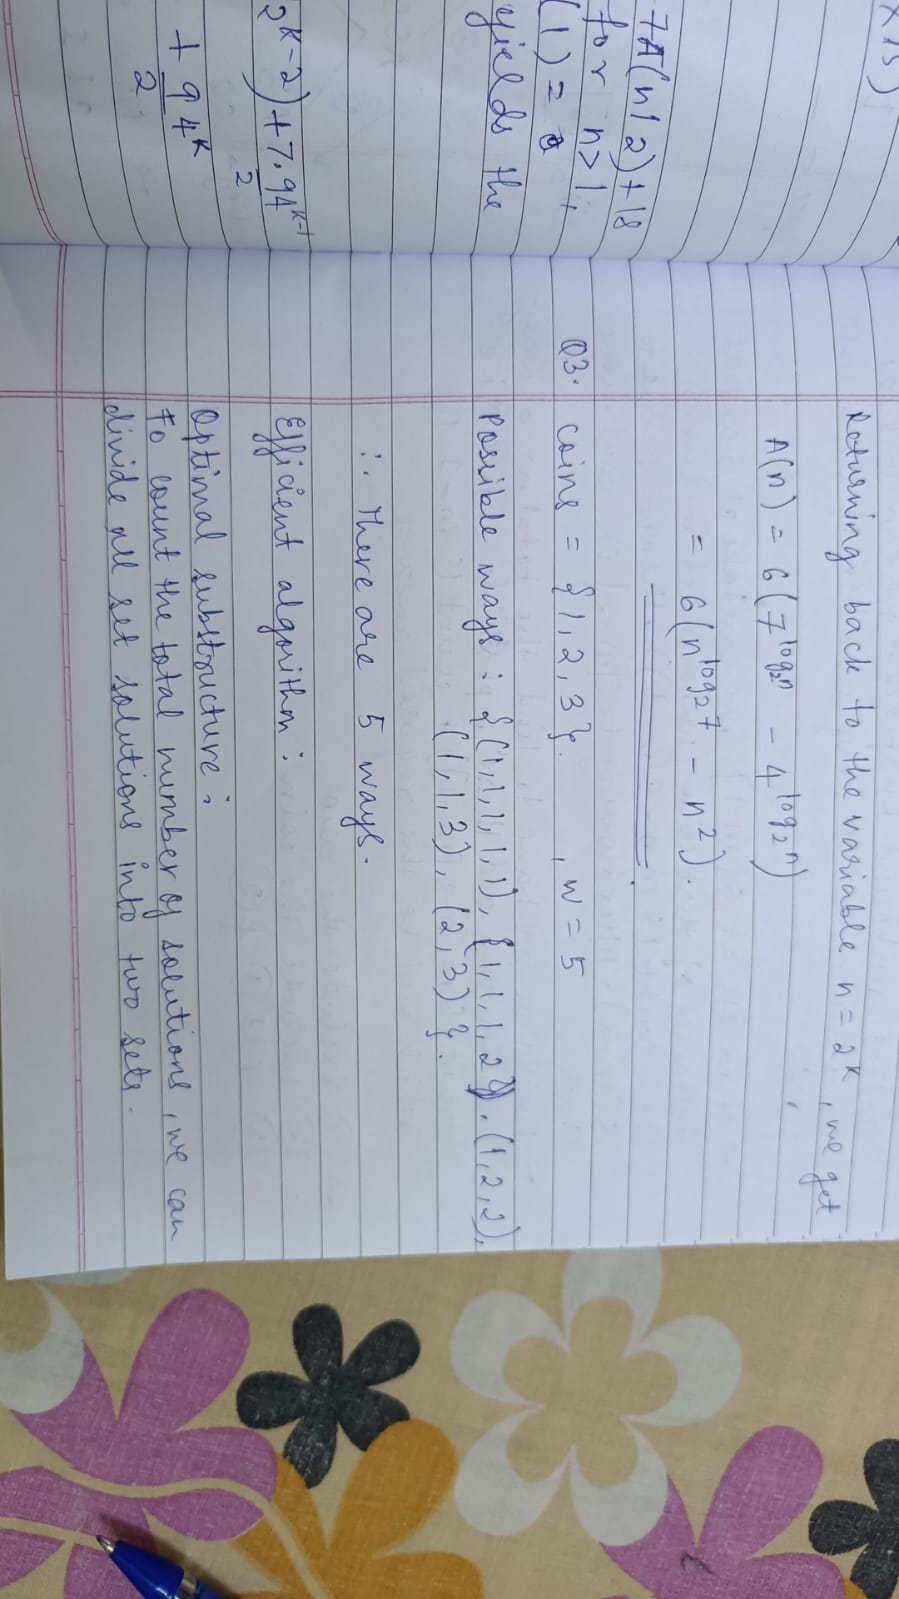 x15)
7A(n/2)+18
for n>1,
(1) =
yields the
2^{k-2}) + 7.9/2 4^{k-1}
+ 9/2 4^k
Returning back to the variable n = 2^k, we get
A(n) = 6(7^{log_2 n} - 4^{log_2 n})
= 6(n^{log_2 7} - n^2).
Q3. coins = {1,2,3}. , W = 5
Possible ways : {(1,1,1,1,1), {1,1,1,2}), (1,2,2),
(1,1,3), (2,3) }.
∴ There are 5 ways.
Efficient algorithm :
Optimal substructure :
To count the total number of solutions, we can
divide all set solutions into two sets.